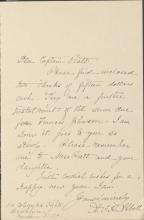 Dear Captain Pratt:
Please find enclosed
two checks of fifteen dollars
each. They are a further
installment of the sum due
from Francis Johnson. I am
sorry it goes to you so
slowly. Please remember
me to Mrs. Pratt and your
daughter.
With cordial wishes for a
happy new year I am
Yours sincerely
Brooklyn